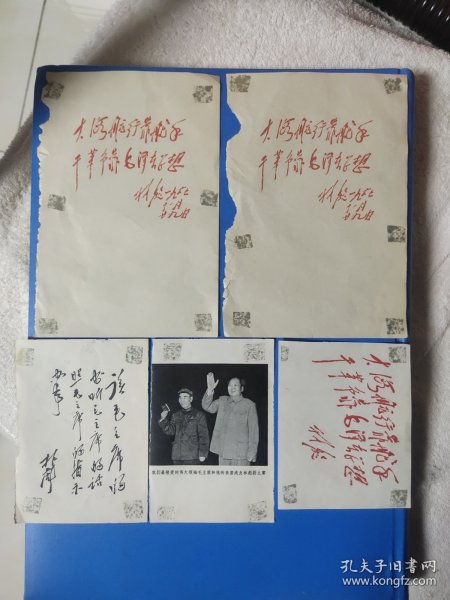 大海航行靠舵手
干革命靠毛泽东思想
林彪 一九六七
十一月
廿九日
大海航行靠舵手
干革命靠毛泽东思想
林彪 一九六七
十一月
廿九日
读毛主席的
书听毛主席的话
照毛主席的指示
办事
林彪
我们最敬爱的伟大领袖毛主席和他的亲密战友林彪副主席
大海航行靠舵手
干革命靠毛泽东思想
林彪
孔夫子旧书网
www.kongfz.com